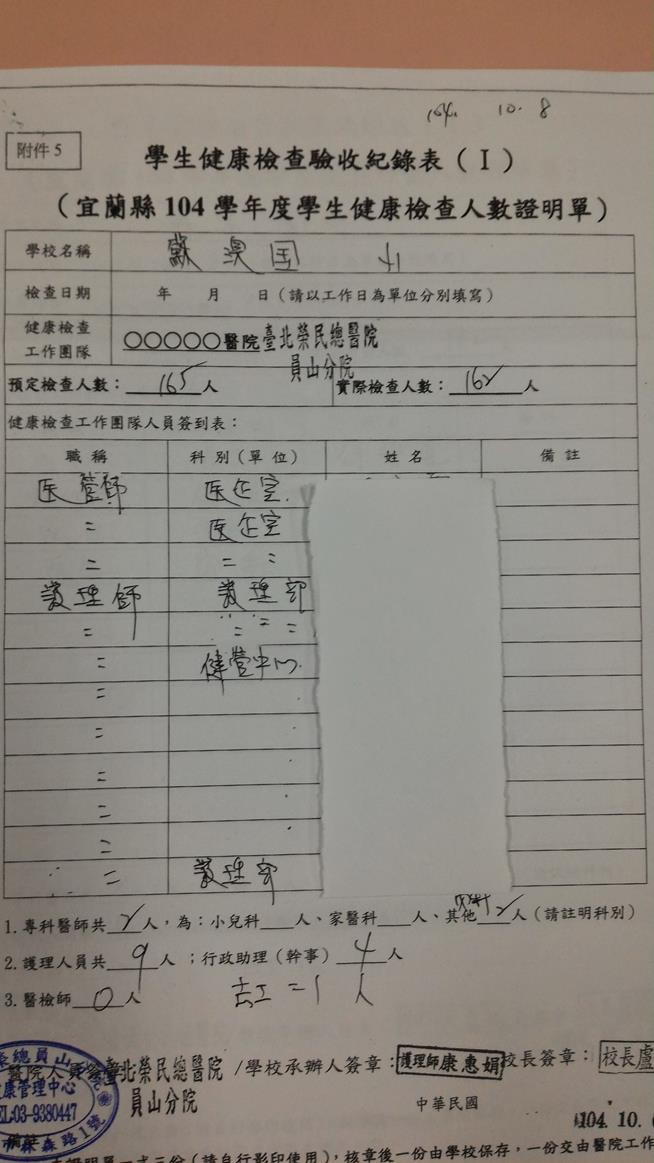 104. 10. 8
附件 5
學生健康檢查驗收紀錄表(Ⅰ)
(宜蘭縣 104 學年度學生健康檢查人數證明單)
學校名稱 蘇澳国 小
檢查日期 年 月 日(請以工作日為單位分別填寫)
健康檢查工作團隊 ○○○○○醫院臺北榮民總醫院
員山分院
預定檢查人數:165人 實際檢查人數:162人
健康檢查工作團隊人員簽到表:
職稱 科別(單位) 姓名 備註
医管師 医企室.
= 医企室
= = =
護理師 護理部
= = = =
= 健管中心.
=
=
=
=
=
= 護理部
1.專科醫師共2人,為:小兒科 人、家醫科 人、其他 2人(請註明科別)
2.護理人員共9人;行政助理(幹事)4人
3.醫檢師0人 志工=1人
總員山
健康管理中心
TEL:03-9380447
市榮森路1號
醫院人員簽章 臺北榮民總醫院/學校承辦人簽章:護理師康惠娟 校長簽章:校長盧
員山分院 中華民國 104.10.
本證明單一式三份(請自行影印使用),核章後一份由學校保存,一份交由醫院工作